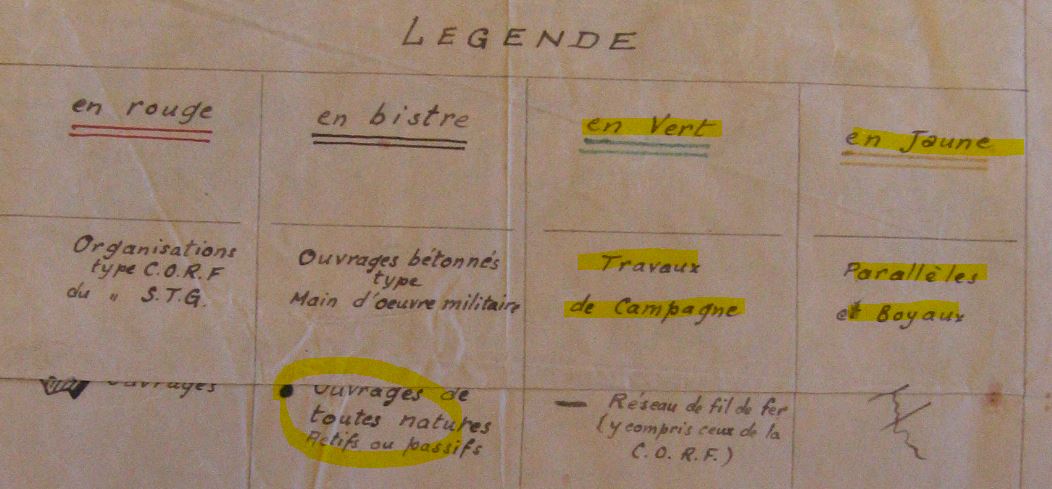 LEGENDE
en rouge
en bistre
en Vert
en Jaune
Organisations
type C.O.R.F
du " S.T.G.
Ouvrages bétonnés
type
Main d'oeuvre militaire
Travaux
de Campagne
Parallèles
et Boyaux
Ouvrages
Ouvrages de
toutes natures
Actifs ou passifs
Réseau de fil de fer
(y compris ceux de la
C.O.R.F.)